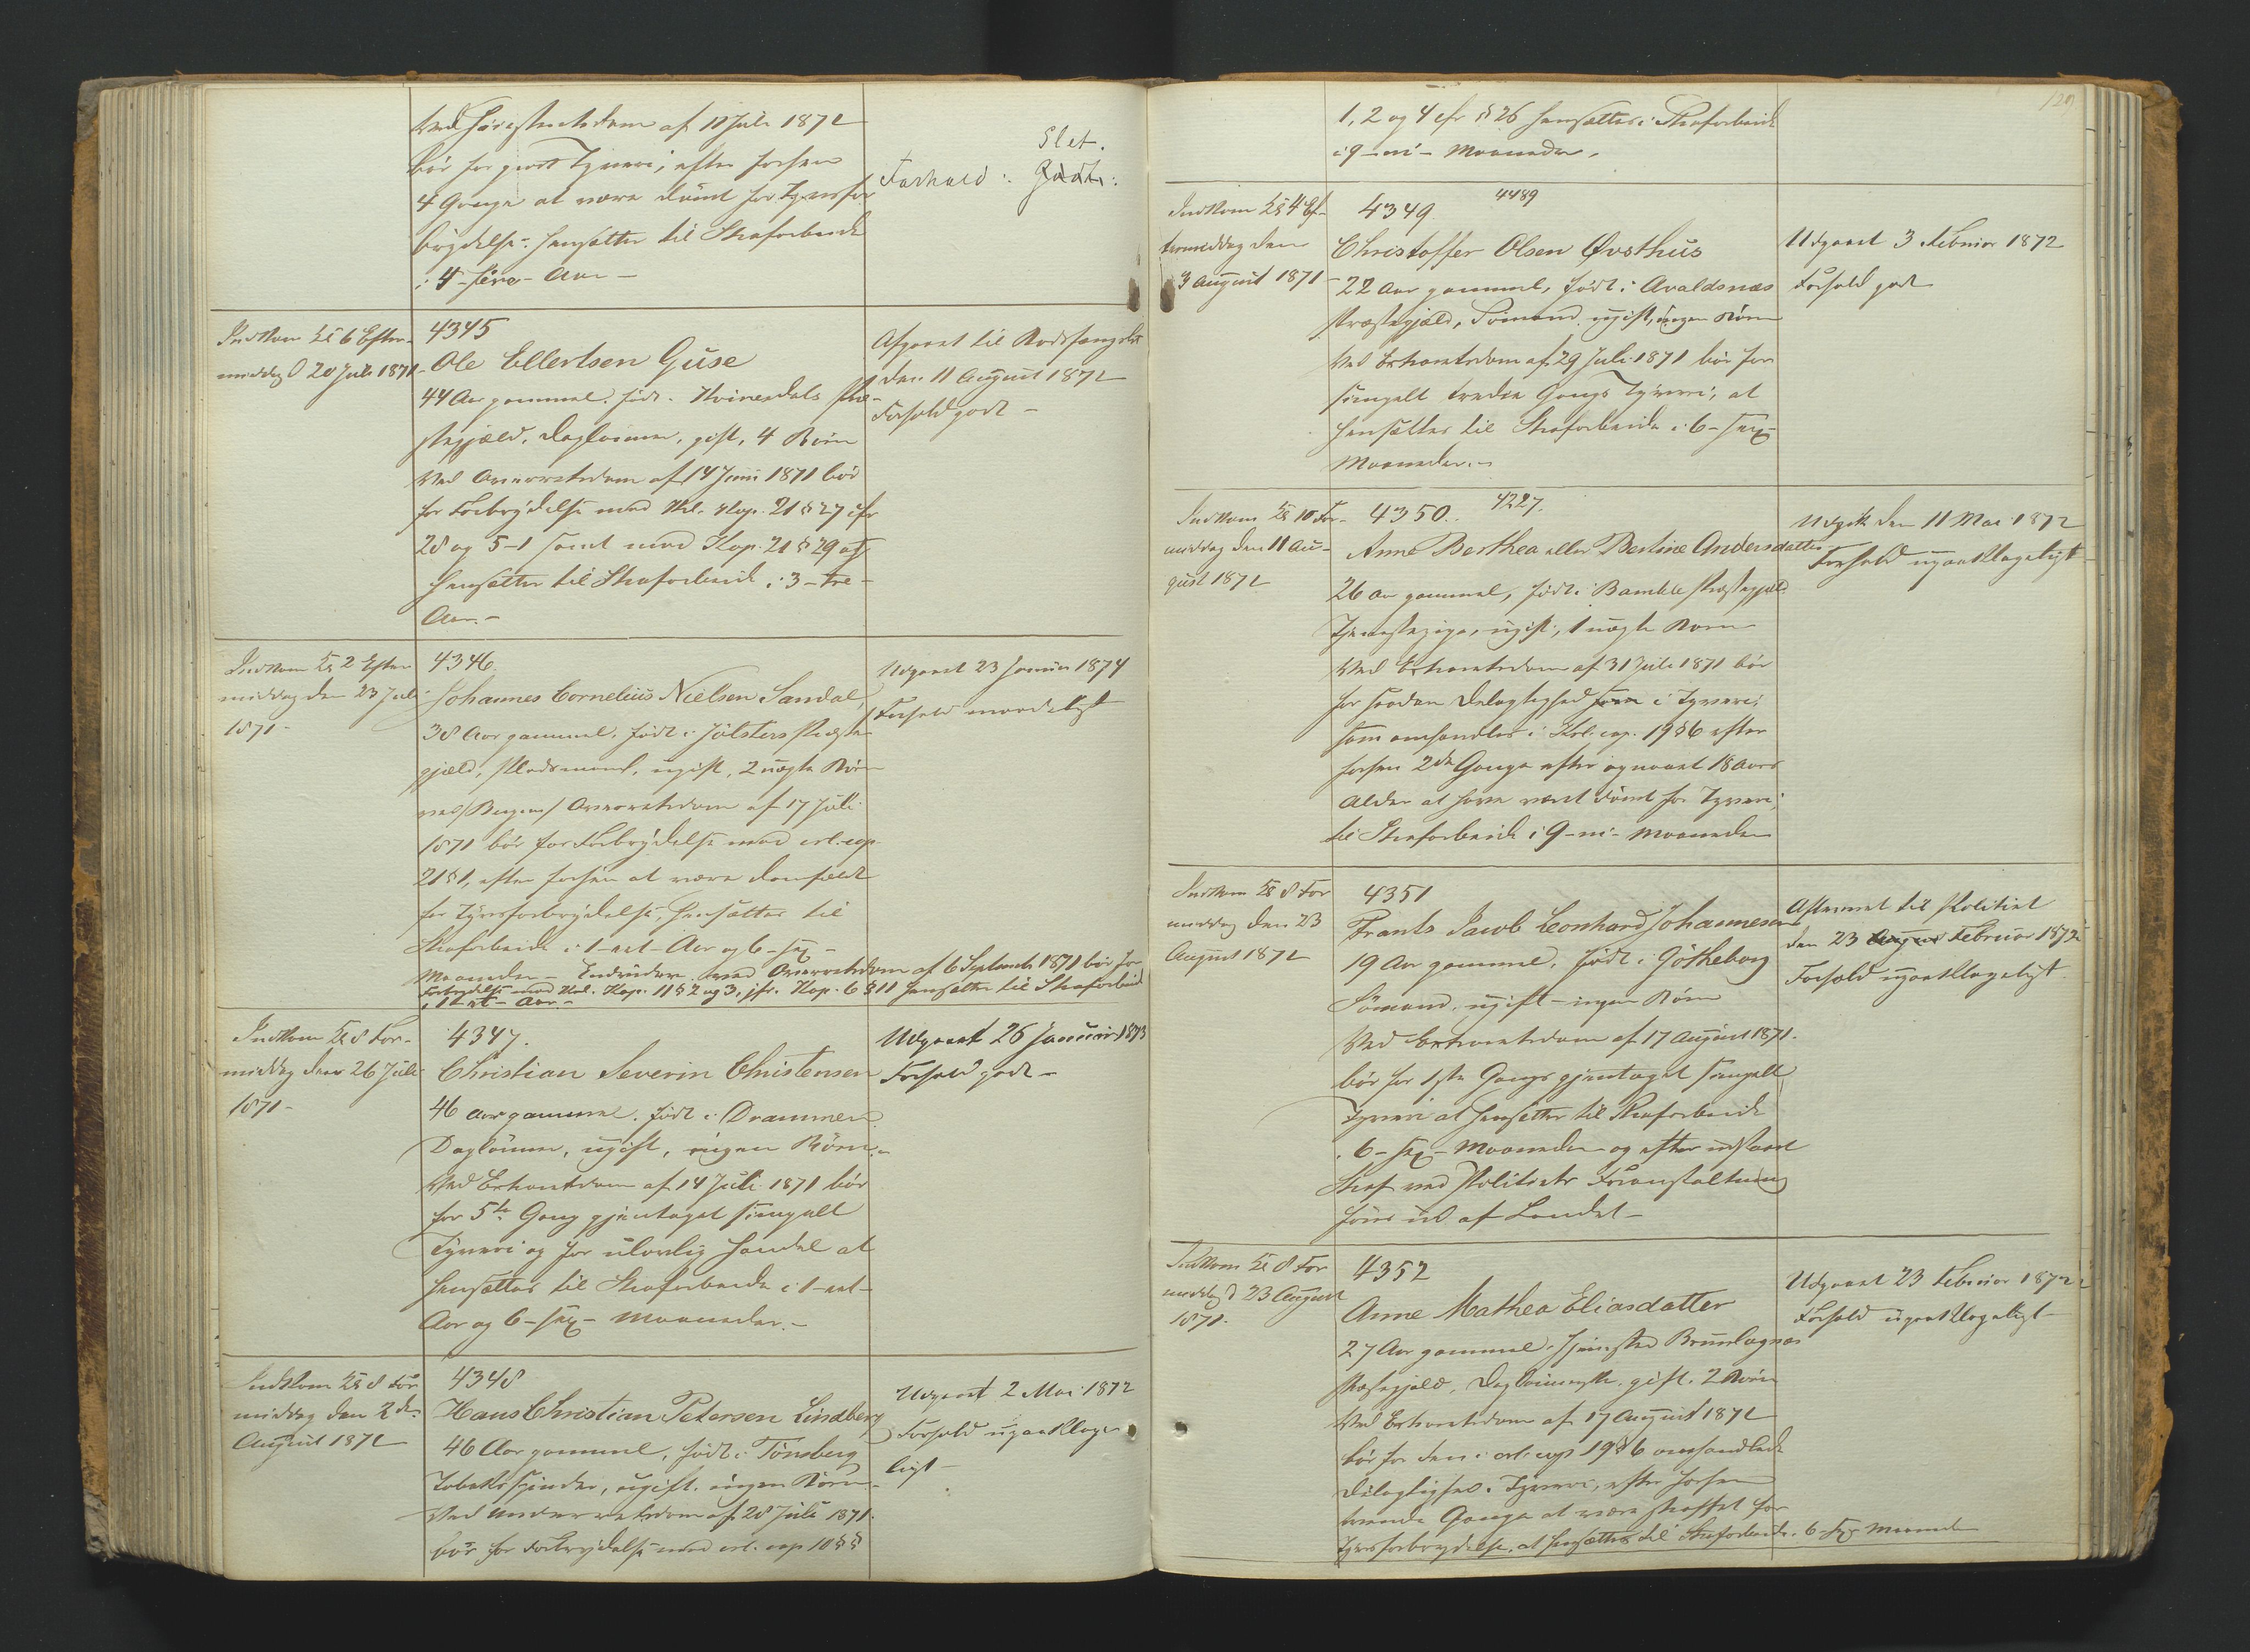 ved Høiesteretsdom af 11 Juli 1871
bör for groft Tyveri, efter forhen
4 Gange at være dømt for Tyvsfor
brydelse, hensættes til Strafarbeide
i 4 - fire - Aar -
Slet.
Forhold: Godt:
Indkom Kl 6 Efter-
middag d 20 Juli 1871
4345
Ole Ellertsen Guse
44 Aar gammel, født i Kvinesdals Præ-
stegjæld, Dagleier, gift, 4 Børn
Ved Overretsdom af 14 Juni 1871 bör
for Forbrydelse mod Krl. Kap. 21 § 27 cfr
28 og 5-1 samt mod Kap. 21 § 29
hensættes til Strafarbeide i 3 - tre -
Aar. -
Afgaaet til Bodsfængslet
den 11 August 1871
Forhold godt -
Indkom Kl 2 Efter
middag den 23 Juli
1871 -
4346.
Johannes Cornelius Nielsen Sandal,
38 Aar gammel, født i Jölsters Præste
gjæld, ugift, 2 uægte Børn
ved Bergens Overretsdom af 17 Juli
1871 bör for Forbrydelse mod crl. cap
21 § 1, efter forhen at være domfældt
for Tyvsforbrydelse, hensættes til
Strafarbeide i 1 - et - Aar og 6 - sex -
Maaneder - Endvidere ved Overretsdom af 6 September 1871 bör for
Forbrydelse mod Krl. Kap. 11 § 2 og 3, jfr. Kap. 6 § 11 hensættes til Strafarbeid
i 1 - et - Aar. -
Udgaaet 23 Januar 1874
Forhold maadeligt
Indkom Kl 8 For-
middag den 26 Juli
1871 -
4347.
Christian Severin Christensen
46 Aar gammel, født i Drammen
Dagleier, ugift, ingen Børn. -
Ved Extraretsdom af 14 Juli 1871 bör
for 5te Gang gjentaget simpelt
Tyveri og for ulovlig Handel at
hensættes til Strafarbeide i 1 - et -
Aar og 6 - sex - Maaneder. -
Udgaaet 26 Januar 1873
Forhold godt -
Indkom Kl 8 For
middag den 2den
August 1871
4348
Hans Christian Petersen Lindberg
46 Aar gammel, født i Tönsberg
Tobaksspinder, ugift, ingen Børn -
Ved Underretsdom af 28 Juli 1871.
bör for Forbrydelse mod crl. cap 10 §§
Udgaaet 2 Mai 1872
Forhold upaaklage
ligt -
129
1, 2 og 4 cfr § 26 hensættes i Strafarbeide
i 9 - ni - Maaneder.
Indkom Kl 4 Ef-
termiddag den
3 August 1871 -
4349 4489
Christoffer Olsen Øvsthus
22 Aar gammel, født i Avaldsnæs
Præstegjæld, Sömand, ugift, ingen Børn
Ved Extraretsdom af 29 Juli 1871 bör for
simpelt tredie Gangs Tyveri, at
hensættes til Strafarbeide i 6 - sex -
Maaneder. -
Udgaaet 3 Februar 1872
Forhold godt
Indkom Kl 10 For-
middag den 11 Au-
gust 1871
4350. 4227.
Anne Berthea eller Bertine Andersdatter
26 Aar gammel, født i Bamble Præstegjæld
Tjenestepige, ugift, 1 uægte Barn
Ved Extraretsdom af 31 Juli 1871 bör
for saadan Delagtighed som i Tyveri,
som omhandles i Krl. cap. 19 § 6 efter
forhen 2de Gange efter opnaaet 18 Aars
Alder at have været dømt for Tyveri,
til Strafarbeide i 9 - ni - Maaneder
Udgik den 11 Mai 1872
Forhold upaaklageligt
Indkom Kl 8 For
middag den 23
August 1871
4351
Frants Jacob Leonhard Johannesen
19 Aar gammel, født i Götheborg
Sömand, ugift - ingen Børn
Ved Extraretsdom af 17 August 1871.
bör for 1ste Gangs gjentaget simpelt
Tyveri at hensættes til Strafarbeide
i 6 - sex - Maaneder og efter udstaaet
Straf ved Politiets Foranstaltning
føres ud af Landet -
Afleveret til Politiet
den 23 August Februar 1872
Forhold upaaklageligt
Indkom Kl 8 For
middag d 23 August
1871.
4352
Anne Mathea Eliasdatter
27 Aar gammel, hjemsted Brunlagnæs
Præstegjæld, gift, 2 Børn
Ved Extraretsdom af 17 August 1871
bör for den i crl. cap 19 § 6 omhandlede
Delagtighed i Tyveri, efter forhen
tvende Gange at være straffet for
Tyvsforbrydelse, at hensættes til Strafarbeide i 6 - sex Maaneder
Udgaaet 23 Februar 1872
Forhold upaaklageligt -